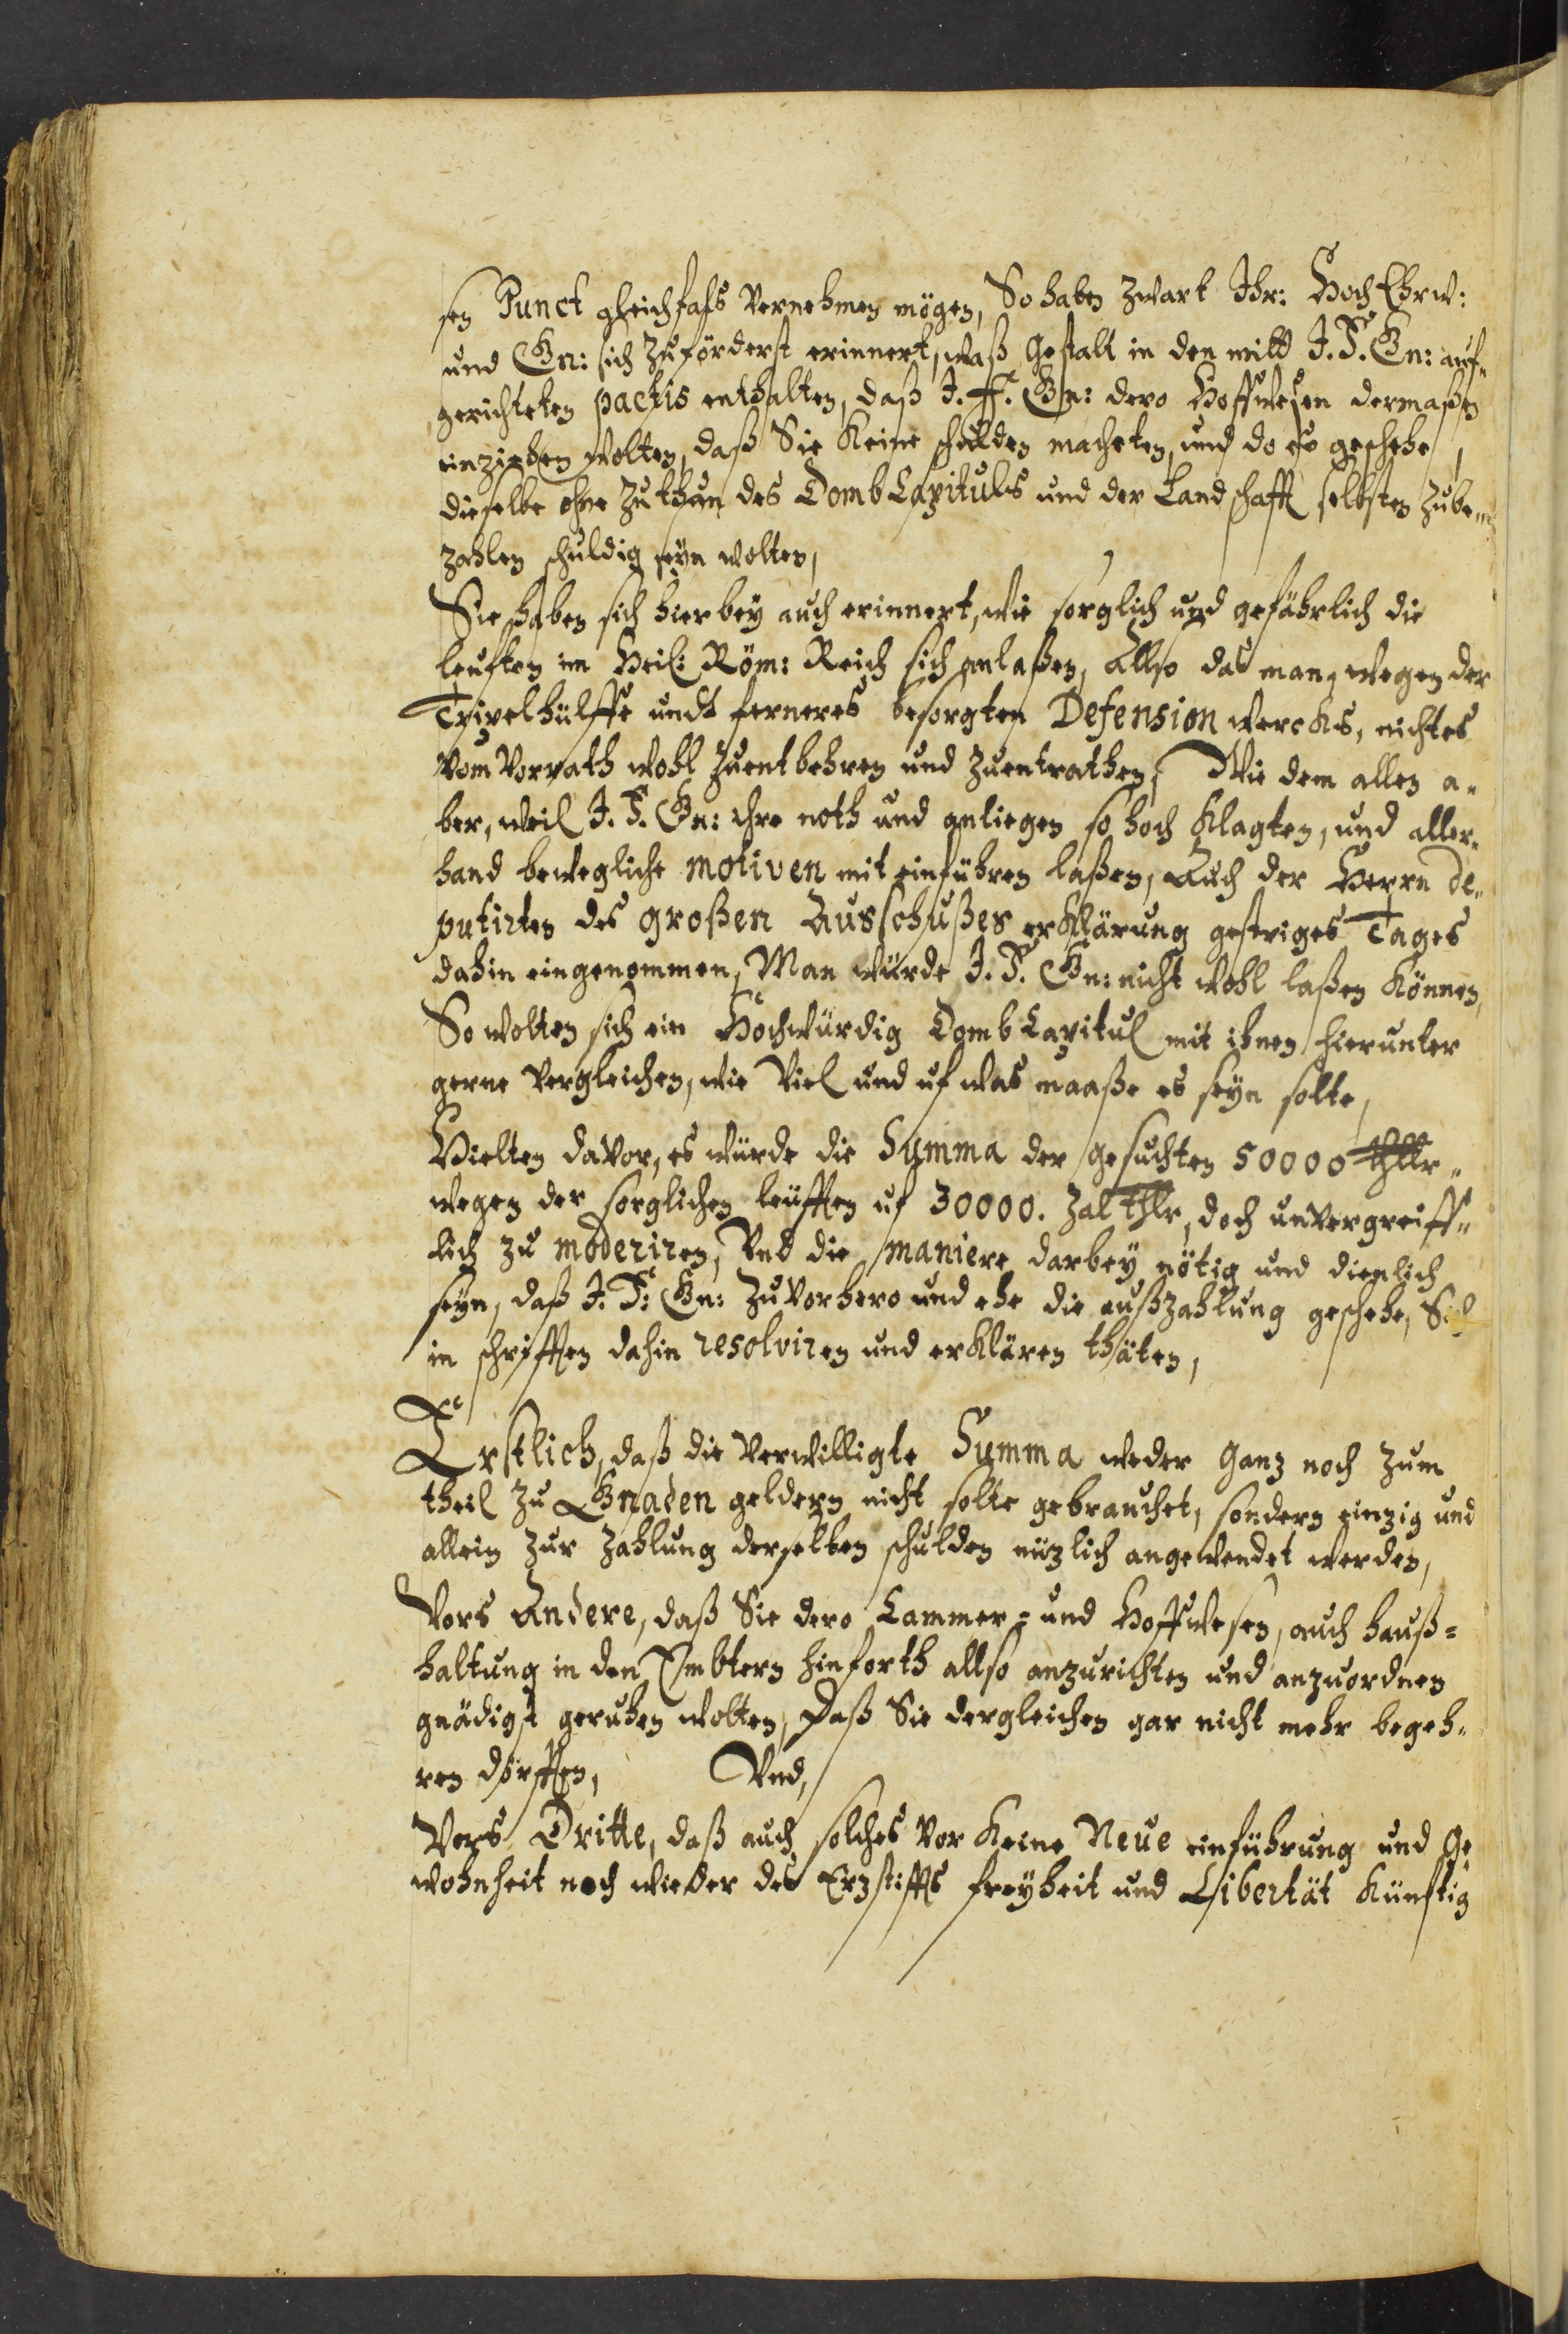 sen Punct gleichfals vernehmen mögen, So haben zwart Ihr: HochEhrw:
und Gn: sich zuförderst erinnert, waß gestalt in den mitt J. F. Gn: auf¬
gerichteten pactis enthalten, daß J. F. Gn: dero Hoffwesen dermaßen
einziehen wolten, daß Sie Keine schulden macheten, und do es geschehe,
dieselbe ohne Zuthun des DombCapituls und der Landschafft selbsten zube¬
zahlen schuldig seyn wolten,
Sie haben sich hierbey auch erinnert, wie sorglich und gefährlich die
leufften im Heil: Röm: Reich sich anlaßen, Allso das man, wegen der
Tripelhülffe undt ferneres besorgten Defension wercks, nichtes
vom Vorrath wohl zuentbehren und zuentrathen, Wie dem allen a¬
ber, weil J. F. Gn: ihre noth und anliegen so hoch Klagten, und aller¬
hand bewegliche motiven mit einführen laßen, Auch der Herrn de¬
putirten des großen Ausschußes erKlärung gestriges Tages
dahin eingenommen, Man würde J. F. Gn: nicht wohl laßen Können,
So wolten sich ein Hochwürdig DombCapitul mit ihnen hierunter
gerne vergleichen, wie viel und uf was maaße es seyn solte,
Hielten davor, es würde die Summa der gesuchten 50000 thlr¬
wegen der sorglichen leufften uf 30000. Zal thlr, doch unvergreiff¬
lich zu moderiren, Und die maniere darbey nötig und dienlich
seyn, daß J. F. Gn: zuvorhero und ehe die außzahlung geschehe, Sich
in schrifften dahin resolviren und erKlären thäten,
Erstlich, daß die verwilligte Summa weder ganz noch zum
theil zu Gnaden geldern nicht solte gebrauchet, sondern einzig und
allein zur zahlung derselben schulden nüzlich angewendet werden,
Vors Andere, daß Sie dero Cammer= und Hoffwesen, auch hauß=
haltung in den Embtern hinforth allso anzurichten und anzuordnen
gnädigst geruhen wolten, Daß Sie dergleichen gar nicht mehr begeh¬
ren dörfften, Und,
Vors Dritte, daß auch solches vor Keine Neue einführung und Ge¬
wohnheit noch wieder des Erzstiffts freyheit und Libertät Künftig